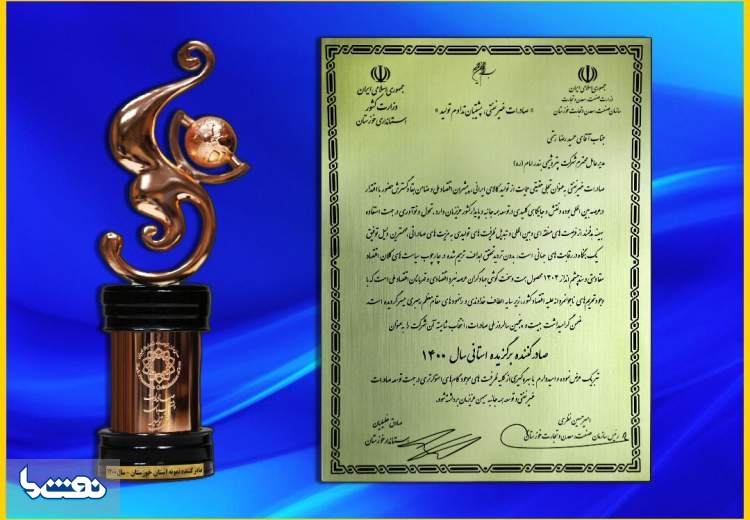 بسمه تعالی
جمهوری اسلامی ایران
وزارت صنعت، معدن و تجارت
سازمان صنعت، معدن و تجارت خوزستان
جمهوری اسلامی ایران
وزارت کشور
استانداری خوزستان
« صادرات غیرنفتی، پشتیبان تداوم تولید »
جناب آقای حمید رضا رستمی
مدیرعامل محترم شرکت پتروشیمی بندر امام (ره)
صادرات غیرنفتی به عنوان تجلی حقیقی حمایت از تولید کالای ایرانی، پیشران اقتصاد ملی و ضامن بقا و گسترش حضور با اقتدار
در عرصه بین المللی بوده و نقش و جایگاهی کلیدی در توسعه همه جانبه و پایدار کشور عزیزمان دارد. تحول و نوآوری در جهت استفاده
بهینه از فرصت های منطقه ای و بین المللی و تبدیل ظرفیت های تولیدی به مزیت های صادراتی، مهمترین دلیل توفیق
یک بنگاه در رقابت های جهانی است، بدون تردید تحقق اهداف ترسیم شده در چارچوب سیاست های کلان اقتصاد
مقاومتی و سند چشم انداز ۱۴۰۴ محصول همت و سخت کوشی جهادگران عرصه نبرد اقتصادی و قهرمانان اقتصاد ملی است که با
وجود تحریم های ناجوانمردانه علیه اقتصاد کشور، زیر سایه الطاف خداوندی و رهنمودهای مقام معظم رهبری میسر گردیده است.
ضمن گرامیداشت بیست و پنجمین سالروز ملی صادرات، انتخاب شایسته آن شرکت را به عنوان
صادرکننده برگزیده استانی سال ۱۴۰۰
تبریک عرض نموده و امیدوارم با بهره گیری از کلیه ظرفیت های موجود گام های استوارتری در جهت توسعه صادرات
غیرنفتی و توسعه همه جانبه میهن عزیزمان برداشته شود.
امیرحسین نظری
رئیس سازمان صنعت، معدن و تجارت خوزستان
صادق خلیلیان
استاندار خوزستان
صادرکننده نمونه استان خوزستان - سال ۱۴۰۰
نفت ما